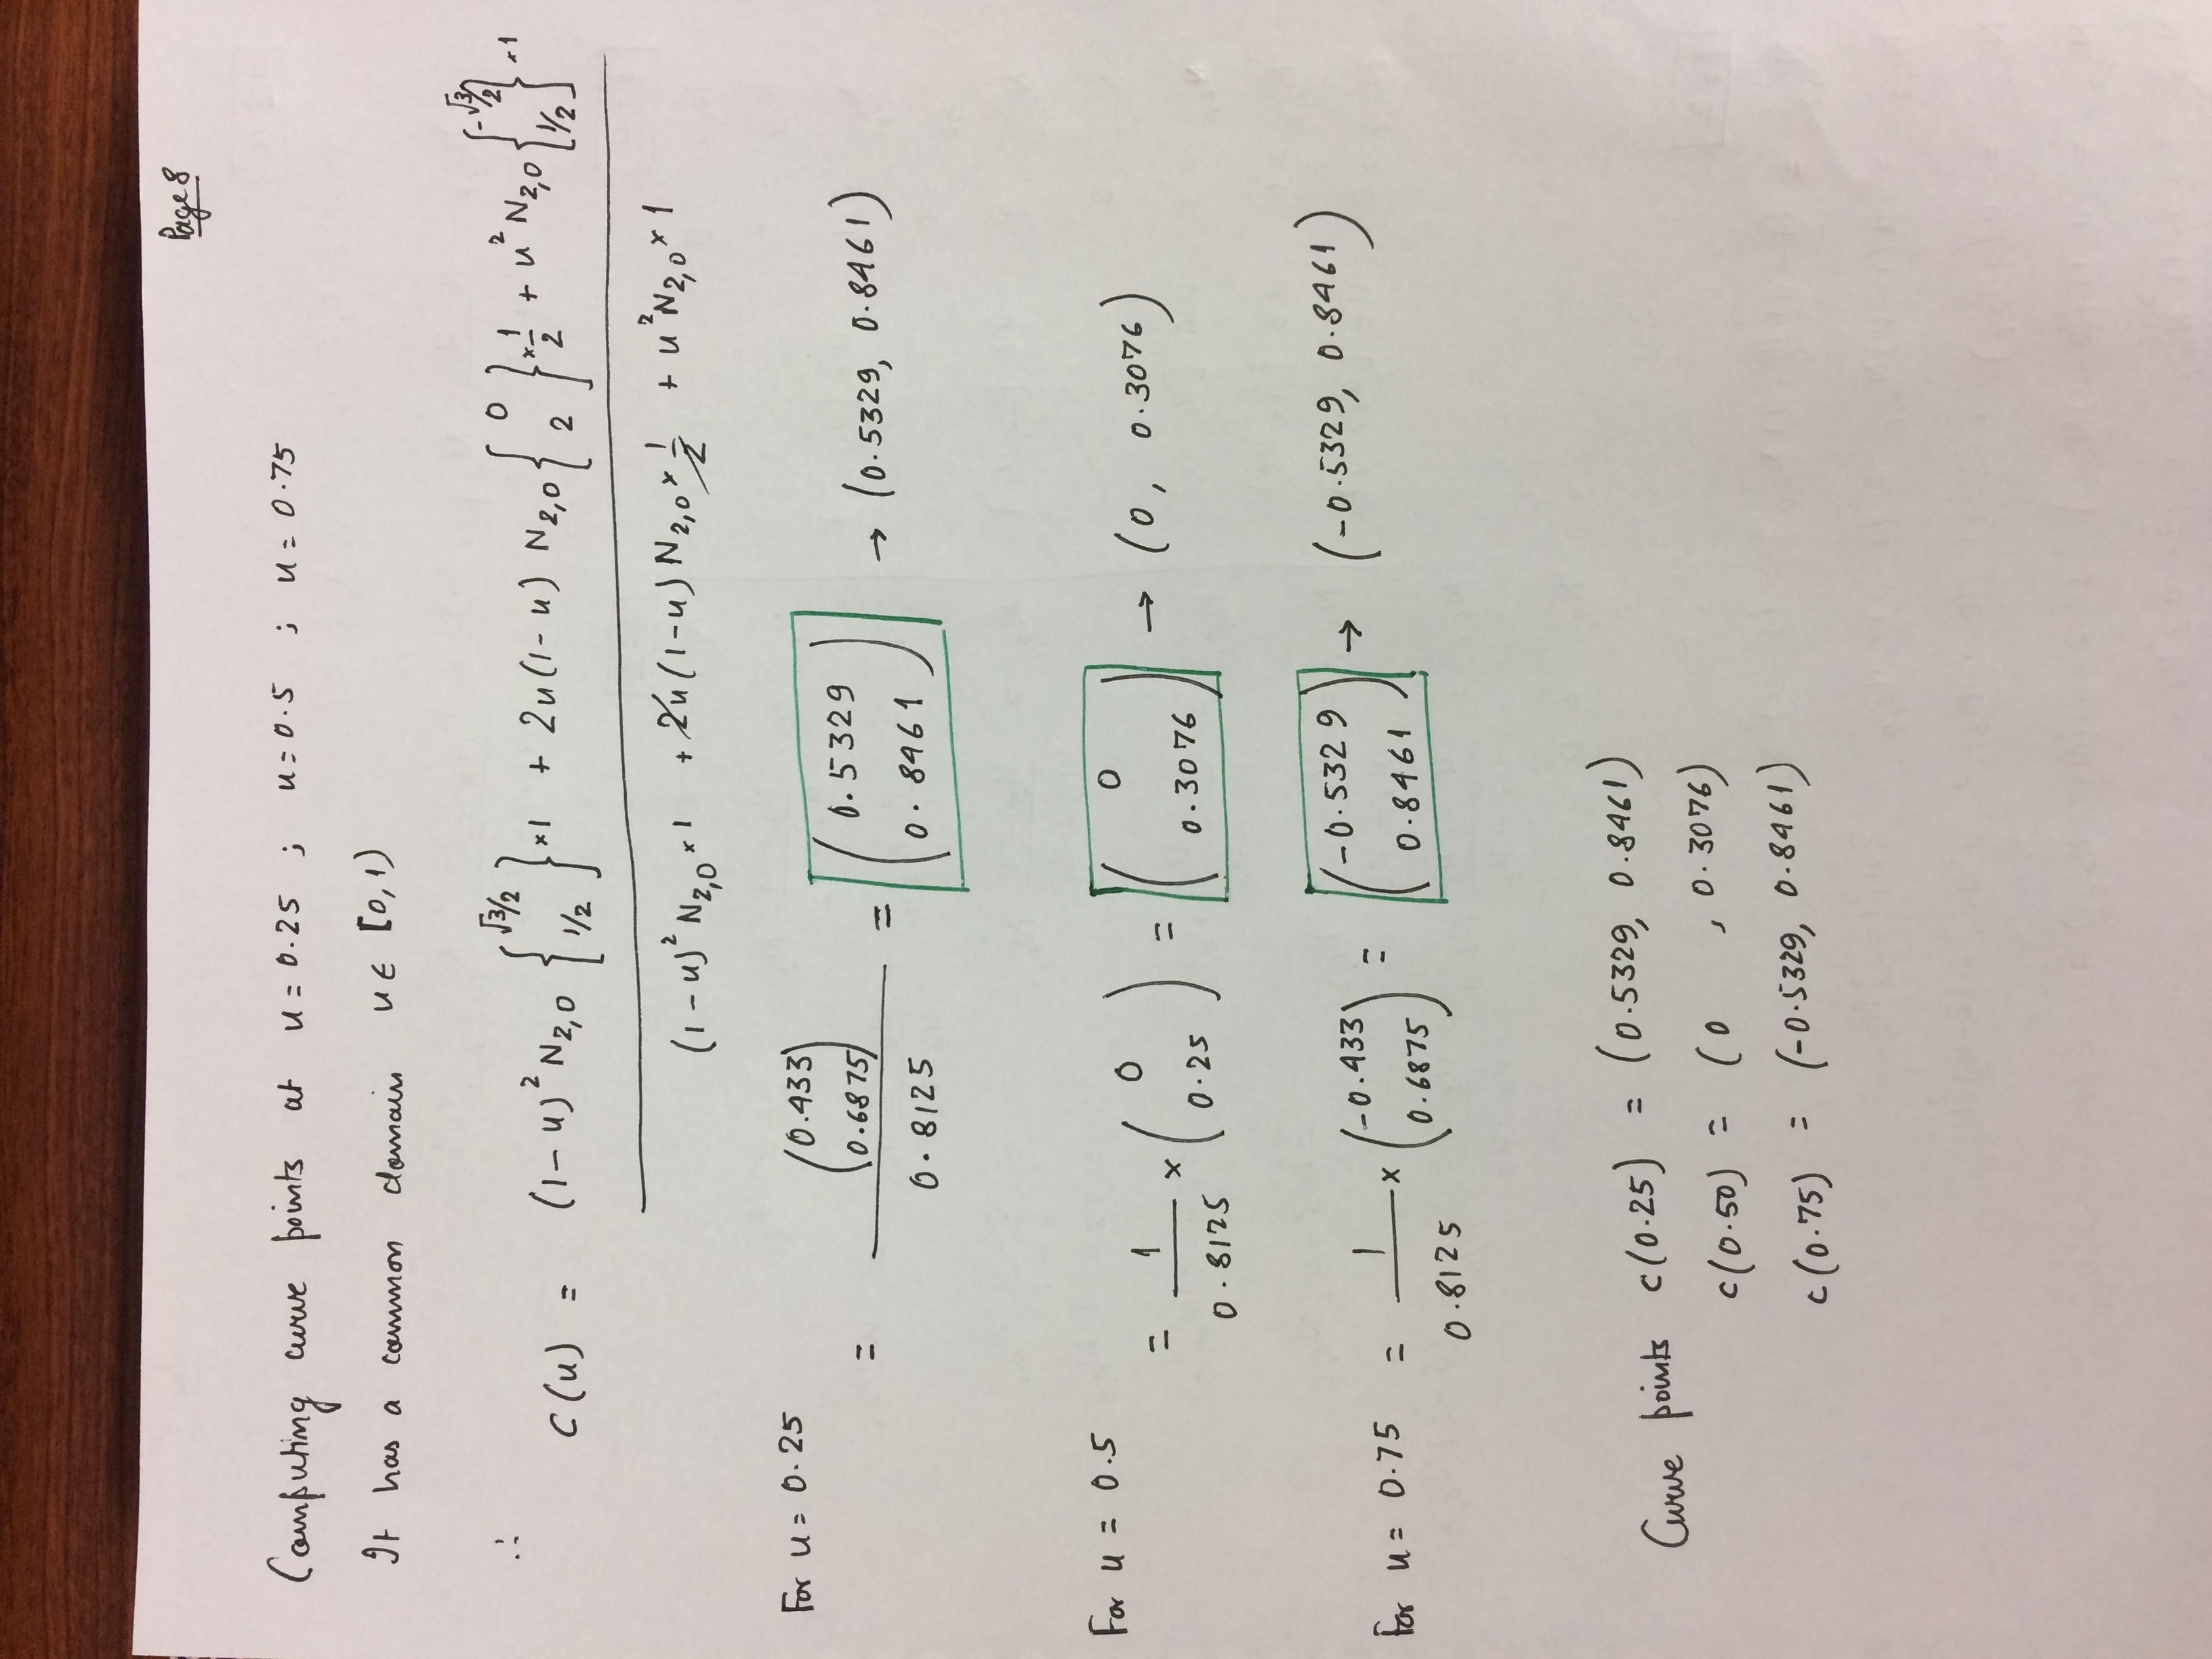 Page 8
Computing curve points at u = 0.25 ; u = 0.5 ; u = 0.75
It has a common domain u ∈ [0,1)
∴ C(u) = (1-u)² N₂,₀ {√3/2 1/2} ×1 + 2u(1-u) N₂,₀ {0 2} × 1/2 + u² N₂,₀ {-√3/2 1/2} ×1
(1-u)² N₂,₀ × 1 + 2u(1-u) N₂,₀ × 1/2 + u² N₂,₀ × 1
For u = 0.25
= (0.433 0.6875) / 0.8125 = (0.5329 0.8461) → (0.5329, 0.8461)
For u = 0.5
= 1/0.8125 × (0 0.25) = (0 0.3076) → (0, 0.3076)
For u = 0.75 = 1/0.8125 × (-0.433 0.6875) = (-0.5329 0.8461) → (-0.5329, 0.8461)
Curve points c(0.25) = (0.5329, 0.8461)
c(0.50) = (0 , 0.3076)
c(0.75) = (-0.5329, 0.8461)